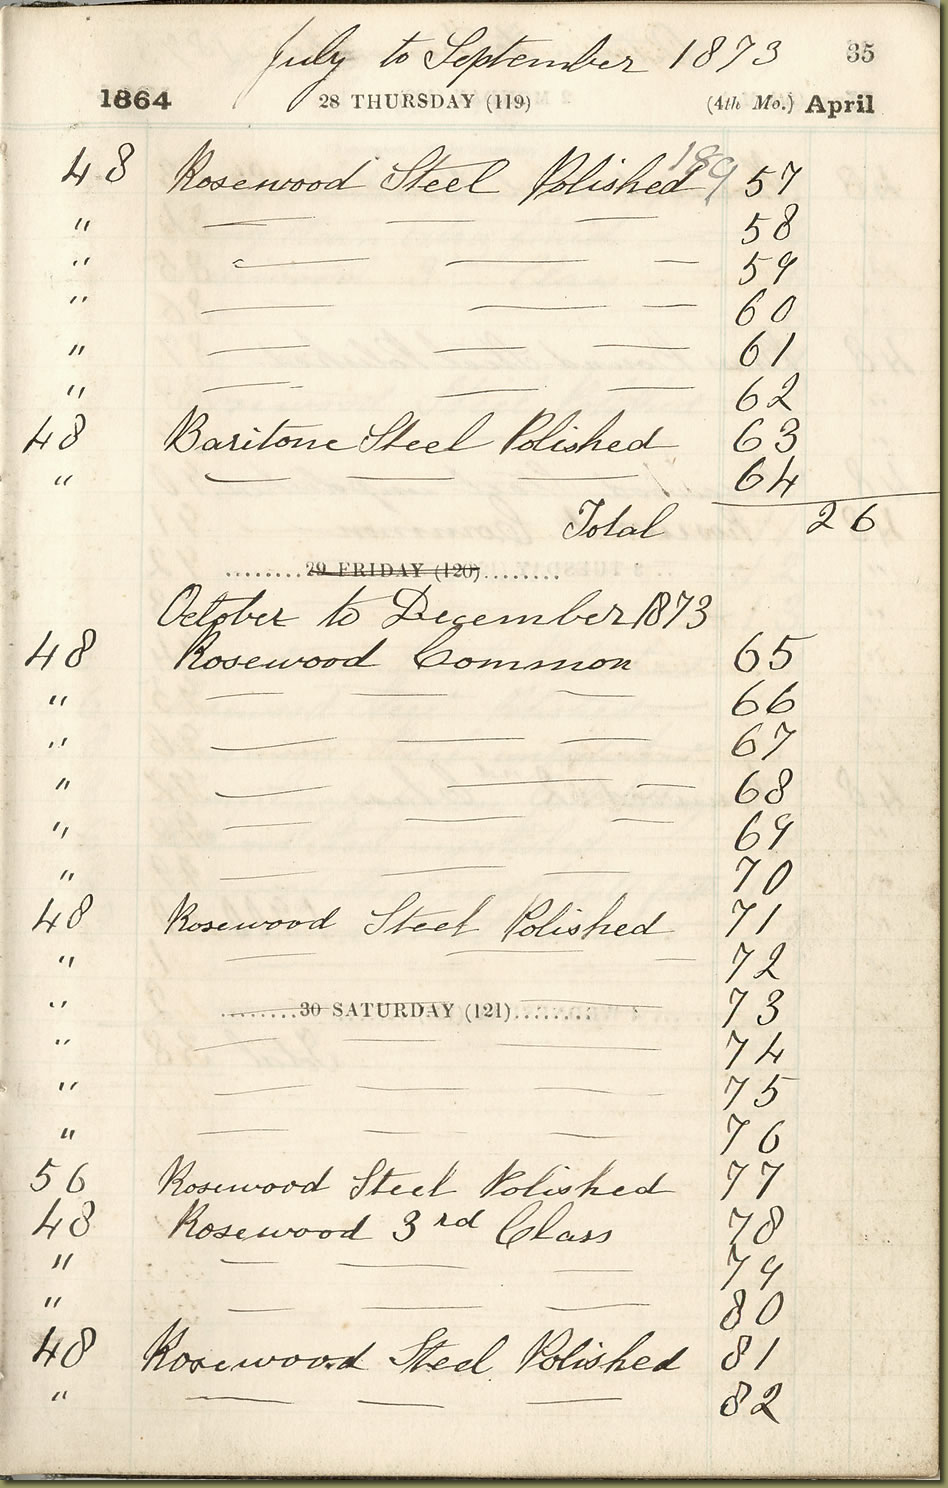 July to September 1873 35
1864 28 THURSDAY (119) (4th Mo.) April
48 Rosewood Steel Polished 189 57
" — — — 58
" — — — 59
" — — — 60
" — — — 61
" — — — 62
48 Baritone Steel Polished 63
" — — — 64
Total 26
........29 FRIDAY (120)........
October to December 1873
48 Rosewood Common 65
" — — — 66
" — — — 67
" — — — 68
" — — — 69
" — — — 70
48 Rosewood Steel Polished 71
" — — — 72
" ........30 SATURDAY (121)........ 73
" — — — 74
" — — — 75
" — — — 76
56 Rosewood Steel Polished 77
48 Rosewood 3rd Class 78
" — — — 79
" — — — 80
48 Rosewood Steel Polished 81
" — — — 82